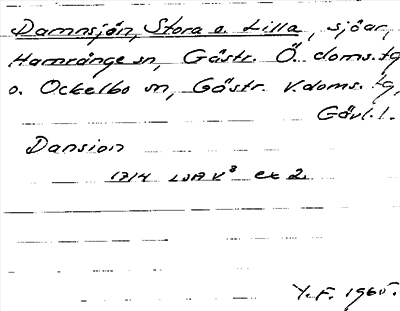 Damnsjön, Stora o. Lilla, sjöar,
Hamrånge sn, Gästr. Ö. doms.tg
o. Ockelbo sn, Gästr. V. doms.tg,
Gävl.l.
Dansion
1714 LSA V³ ex 2.
Y.F. 1965.